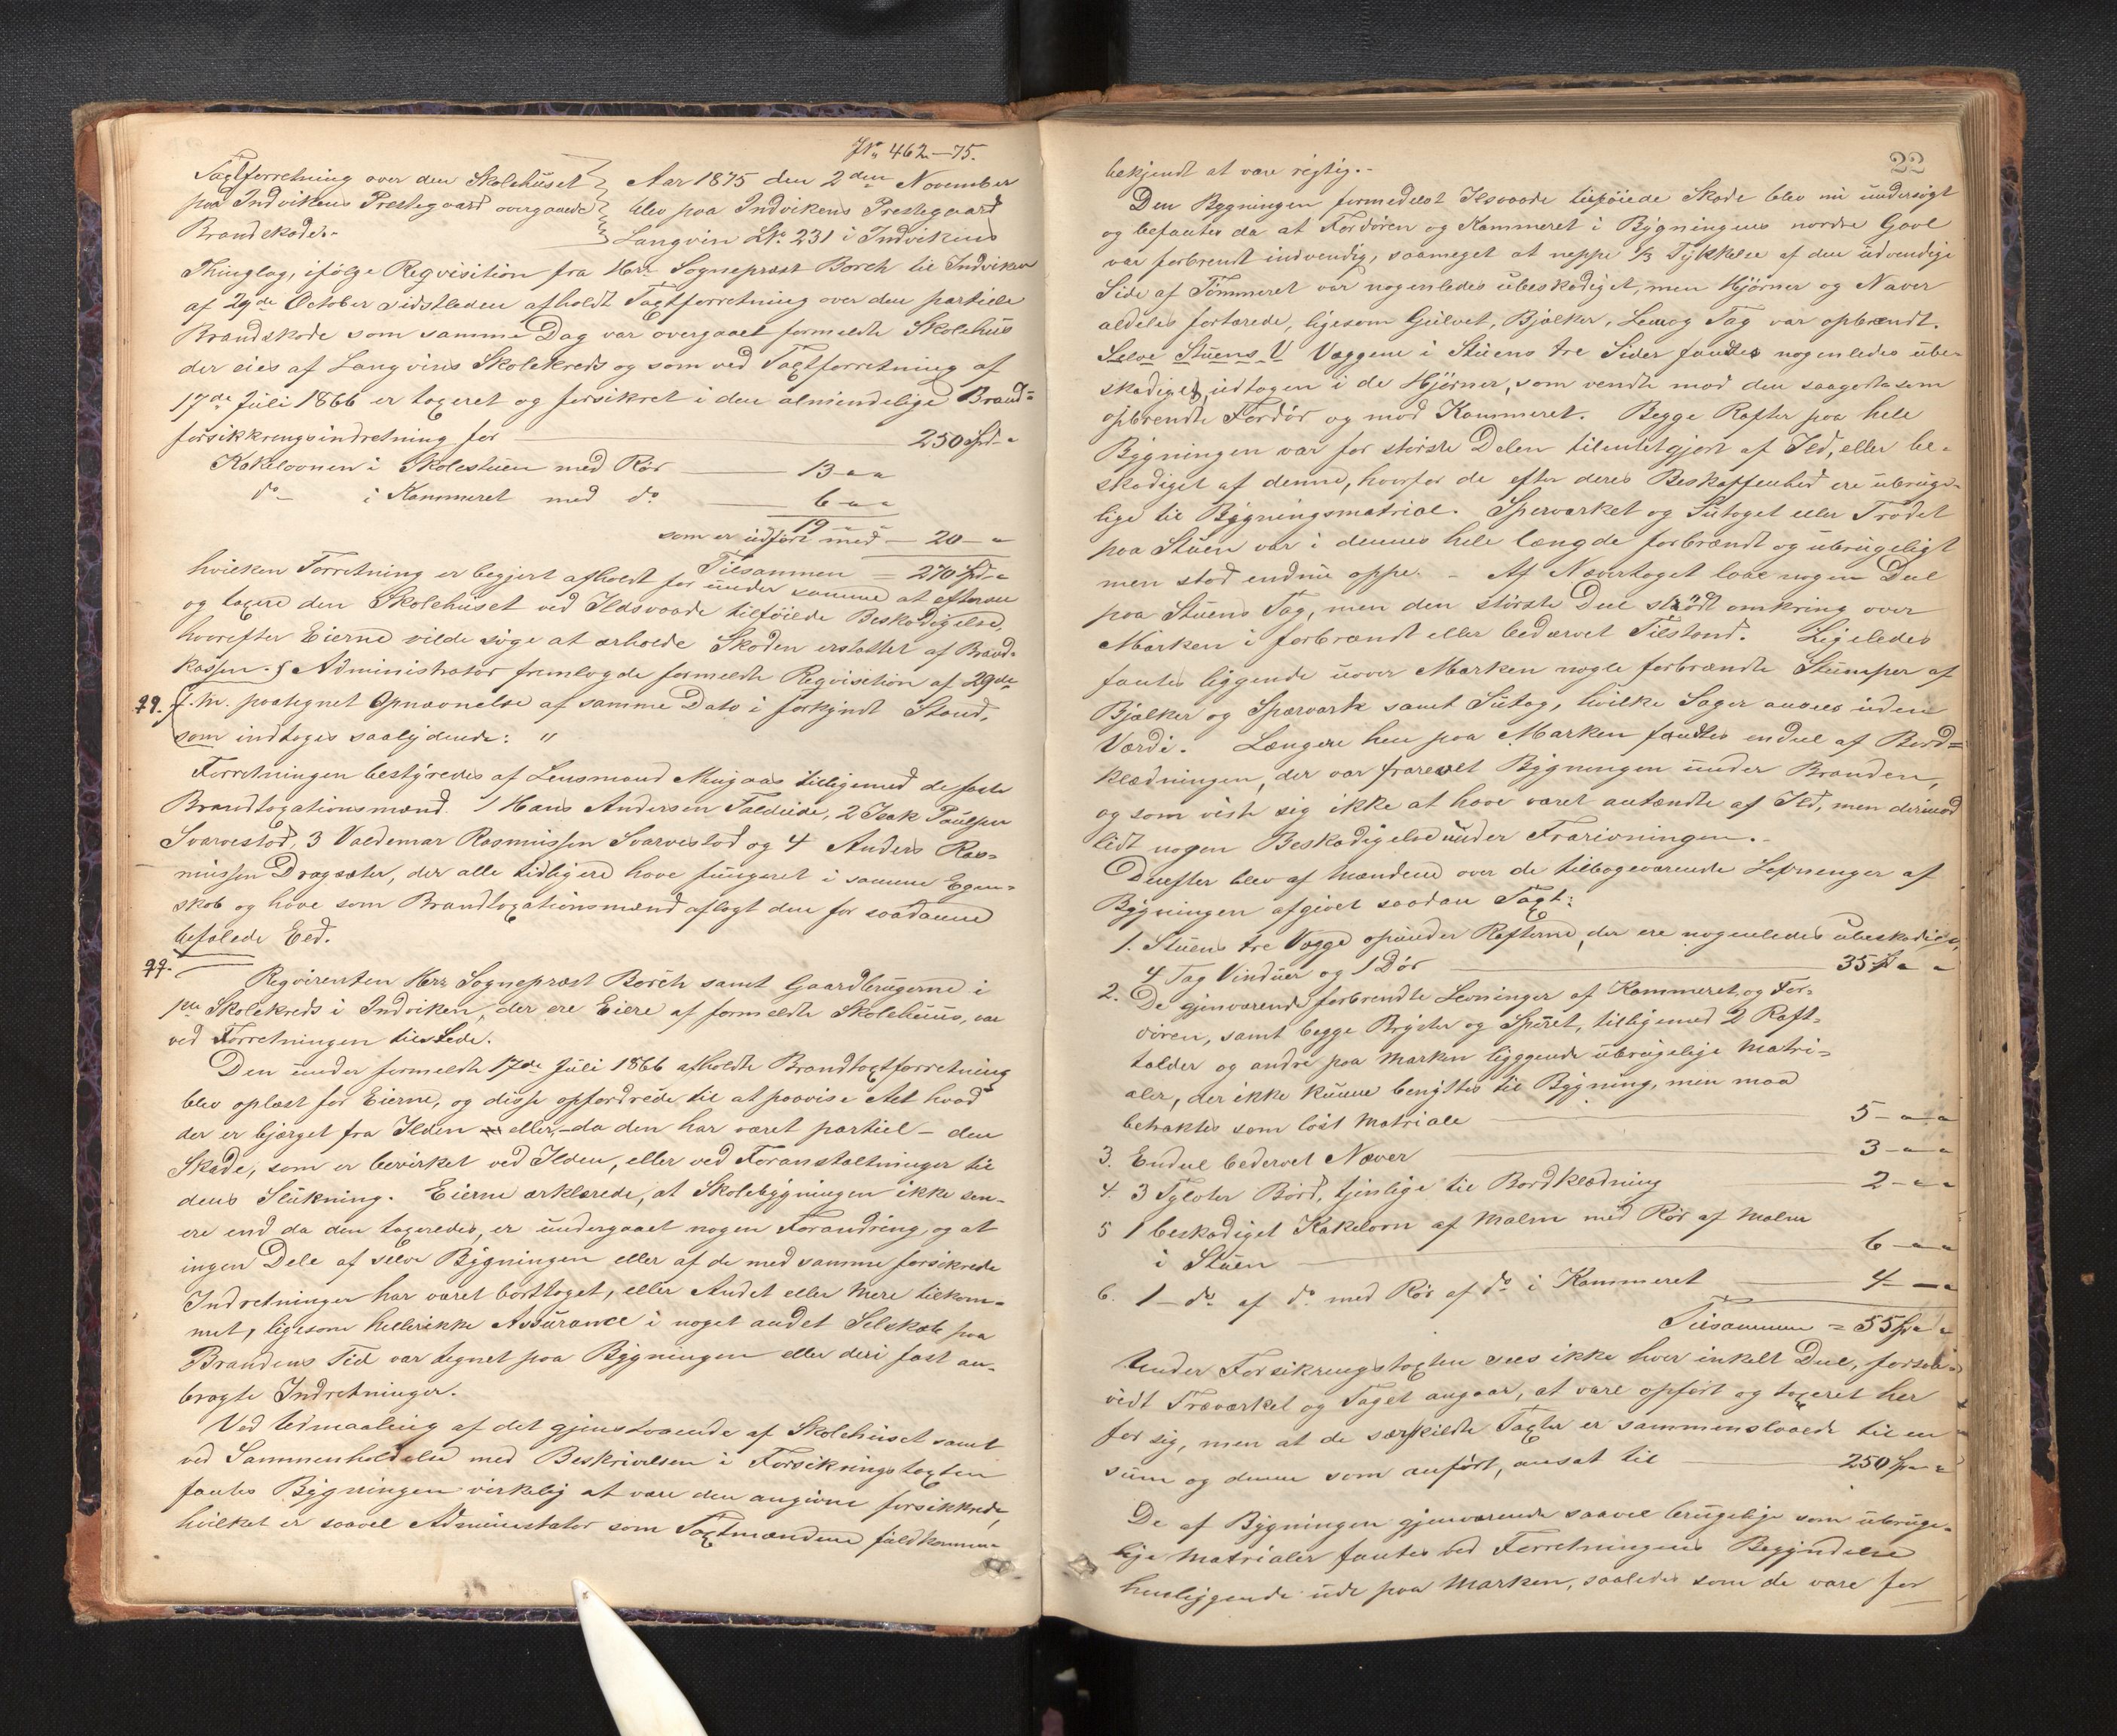 Jr. 462-75.
Taxtforretning over den Skolehuset
paa Indvikens Prestegaard overgaaede
Brandskade.-
Aar 1875 den 2den November
blev paa Indvikens Prestegaard
Langvin LNo 231 i Indvikens
Thinglag, ifølge Reqvisition fra Herr Sognepræst Borch til Indviken
af 29de October sidstleden afholdt Taxtforretning over den partielle
Brandskade som samme Dag var overgaaet formeldte Skolehus
der eies af Langvins Skolekreds og som ved Taxtforretning af
17de Juli 1866 er taxeret og forsikret i den almindelige Brand=
forsikkrengsindretning for 250 Spd "
Kakelovnen i Skolestuen med Rør 13 " "
do i Kammeret med do 6 " "
19 " "
som er udført med 20 - "
Tilsammen = 270 Spd "
hvilken Forretning er begjert afholdt for under samme at efterse
og taxere den Skolehuset ved Ildsvaade tilføiede Beskadigelse,
hvorefter Eierne vilde søge at erholde Skaden erstattet af Brand=
kassen. Administrator fremlagde formeldte Reqvisition af 29de
f. M. paategnet Opnævnelse af samme Dato i forkyndt Stand,
som indtoges saalydende: "
Forretningen bestyredes af Lensmand Myrgaas tilligemed de faste
Brandtaxationsmænd 1 Hans Andersen Taldeide, 2 Isak Paulsen
Svarvestad, 3 Valdemar Rasmussen Svarvestad og 4 Anders Ras=
mussen Dragsæter, der alle tidligere have fungeret i samme Egen=
skab og have som Brandtaxationsmænd aflagt den for saadanne
befalede Eed.
Reqvirenten Herr Sognepræst Borch samt Gaardbrugerne i
Skolekreds i Indviken, der ere Eiere af formeldte Skolehuus, var
ved Forretningen tilstede.
Den under formeldte 17de Juli 1866 afholdte Brandtaxtforretning
blev oplæst for Eierne, og disse opfordrede til at paavise Alt hvad
der er bjærget fra Ilden eller, - da den har været partiel - den
Skade, som er bevirket ved Ilden, eller ved Foranstaltninger til
dens Slukning. Eierne erklærede, at Skolebygningen ikke sen=
ere end da den taxeredes, er undergaaet nogen Forandring, og at
ingen Dele af selve Bygningen eller af de med samme forsikrede
Indretninger har været borttaget, eller Andet eller Mere tilkom=
met, ligesom hellerikke Assurance i noget andet Selskab paa
Brandens Tid var tegnet paa Bygningen eller deri fast an=
bragte Indretninger.
Ved Udmaaling af det gjenstaaende af Skolehuset samt
ved Sammenholdelse med Beskrivelsen i Forsikringstaxten
fantes Bygningen virkelig at være den angivne forsikkrede,
hvilket er saavel Administrator som Taxtmændene fuldkommen
22
bekjendt at være rigtig.-
Den Bygningen formedelst Ilsvaade tilføiede Skade blev nu undersøgt
og befantes da at Fordøren og Kammeret i Bygningens nordre Gavl
var forbrendt indvendig, saameget at neppe 1/3 Tykkelse af den udvendige
Side af Tømmeret var nogenledes ubeskadiget, men Hjørner og Naver
aldeles fortærede, ligesom Gulvet, Bjælker, Lem og Tag var opbrændt.
Selve Stuens V Væggene i Stuens tre Sider fandtes nogenledes ube=
skadiget, udtagen i de Hjørner, som vendte mod den saagodtsom
opbrendte Fordør og mod Kammeret. Begge Rafter paa hele
Bygningen var for største Delen tilentetgjort af Ild, eller be=
skadiget af denne, hvorfor de efter deres Beskaffenhed ere ubruge=
lige til Bygningsmatrial. Sperværket og Sutaget eller Trodet
paa Stuen var i dennes hele længde forbrændt og ubrugeligt
men stod endnu oppe. - Af Nævertaget laae nogen Deel
paa Stuens Tag, men den største Deel strødt omkring over
Marken i forbrændt eller bedærvet Tilstand. Ligeledes
fantes liggende uover Marken nogle forbrændte Stumper af
Bjælker og Sperværk samt Sutag, hvilke Sager ansees uden
Værdi. Længere hen paa Marken fandtes endeel af Bord=
klædningen, der var frarevet Bygningen under Branden,
og som viste sig ikke at have været antændte af Ild, men derimod
lidt nogen Beskadigelse under Frarivningen.-
Derefter blev af Mændene over de tilbageværende Levninger af
Bygningen afgivet saadan Taxt:
1. Stuens tre Vægge opunder Rafterne, der ere nogenledes ubeskadiget,
4 Fag Vinduer og 1 Dør 35 Sp " "
2. De gjenværende forbrendte Levninger af Kammeret og For=
døren, samt begge Brøster og Speret, tilligemed 2 Raft=
talder og andre paa Marken liggende ubrugelige Matri=
aler, der ikke kunne benyttes til Bygning, men maa
betraktes som løst Matriale 5 - " "
3. Endeel bedervet Næver 3 - " "
4. 3 Tylvter Bord, tjenlige til Bordklædning 2 - " "
5 1 beskadiget Kakelovn af Malm med Rør af Malm
i Stuen 6 - " "
6. 1 - do af do med Rør af do i Kammeret 4 - "
Tilsammen = 55 Sp " "
Under Forsikrengstaxten sees ikke hver enkelt Deel, forsaa=
vidt Træværket og Taget angaar, at være opført og taxeret her
for sig, men at de særskildte Taxter er sammenslaaede til en
sum og denne som anført, ansat til 250 Sp " "
De af Bygningen gjenværende saavel brugelige som ubruge=
lige Matrialer fantes ved Forretningens Begyndelse
henliggende ude paa Marken, saaledes som de vare for